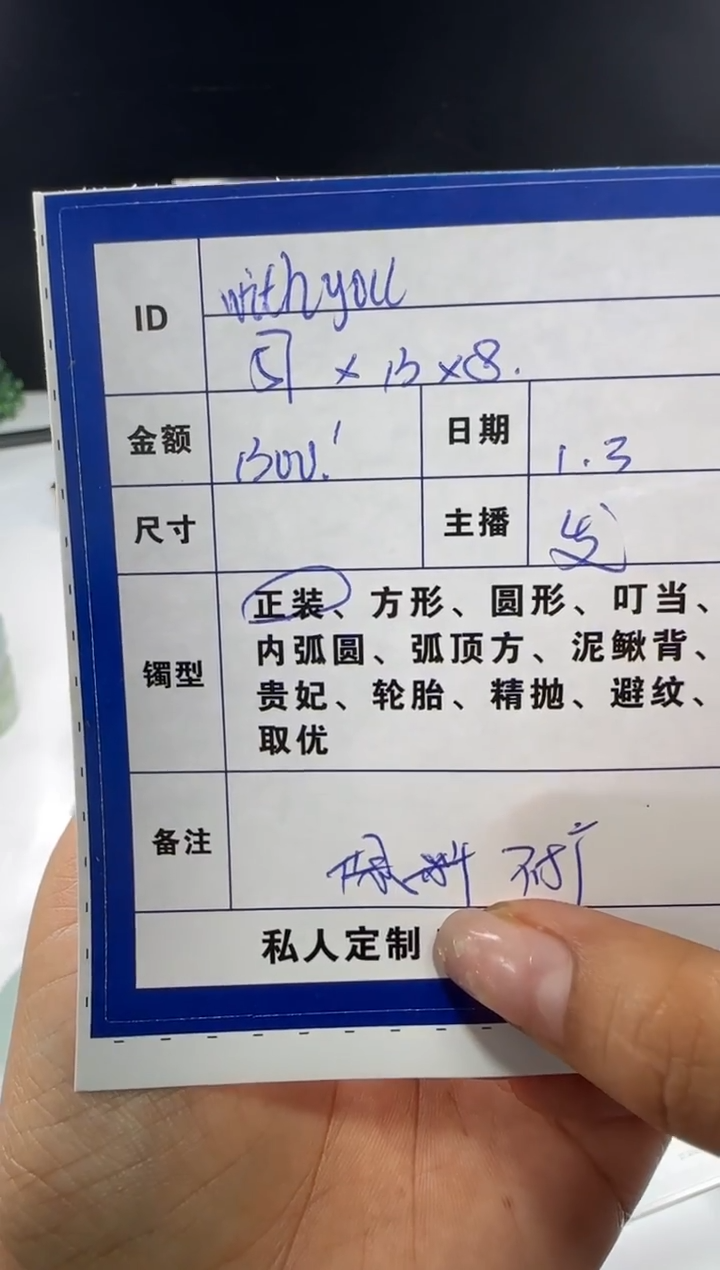 ID
with you
× 13 × 8.
金额
1300!
日期
1.3
尺寸
主播
发
镯型
正装、方形、圆形、叮当、
内弧圆、弧顶方、泥鳅背、
贵妃、轮胎、精抛、避纹、
取优
备注
私人定制